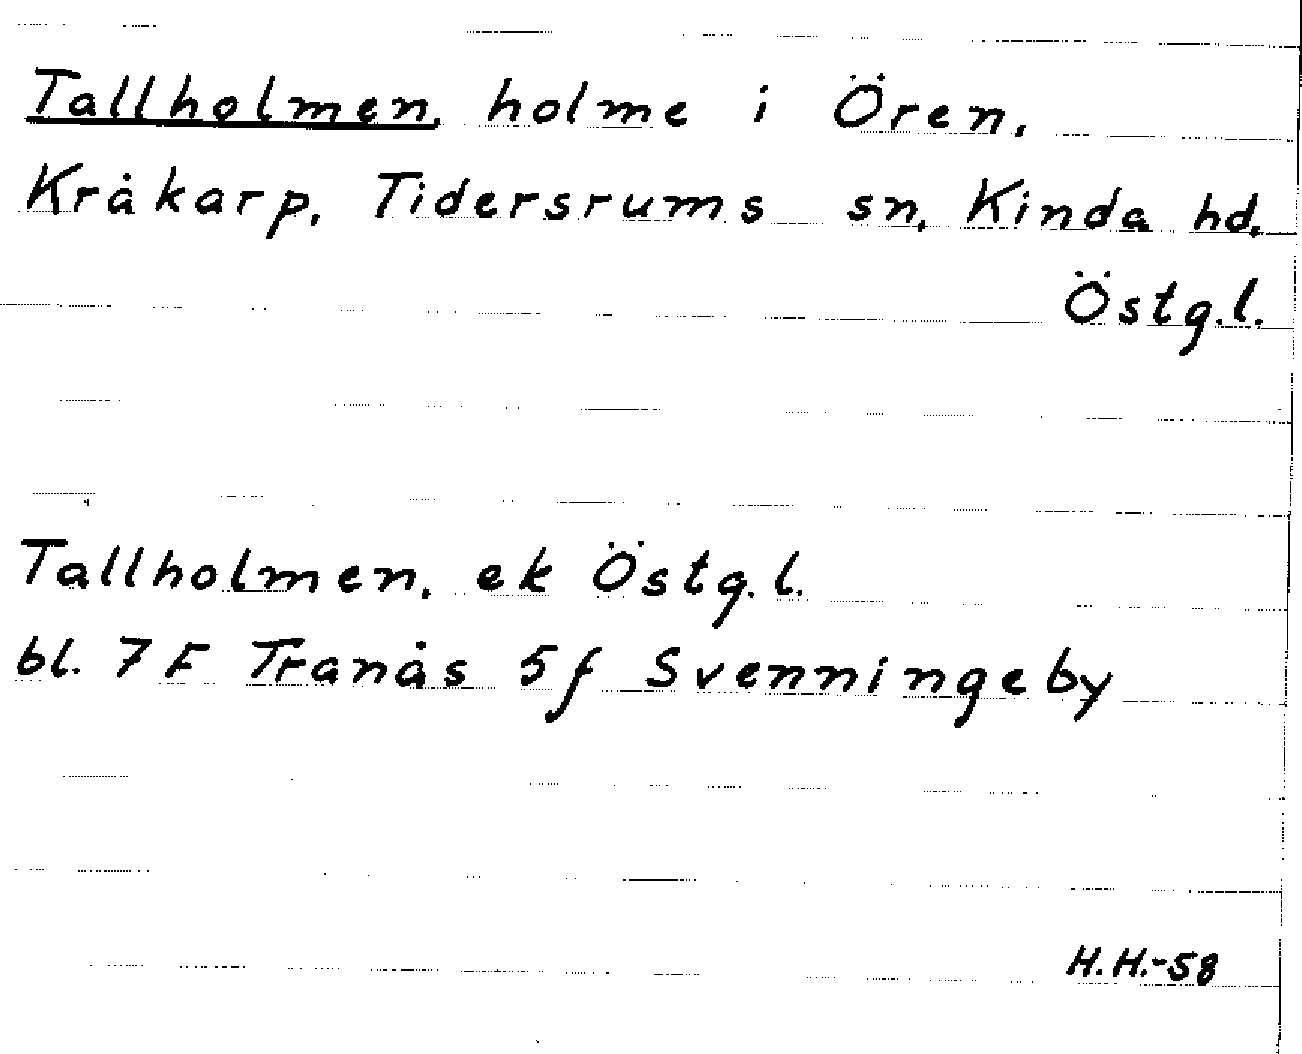 Tallholmen, holme i Ören,
Kråkarp, Tidersrums sn, Kinda hd,
Östg.l.
Tallholmen, ek Östg.l.
bl. 7 F Tranås 5 f Svenningeby
H.H.-58